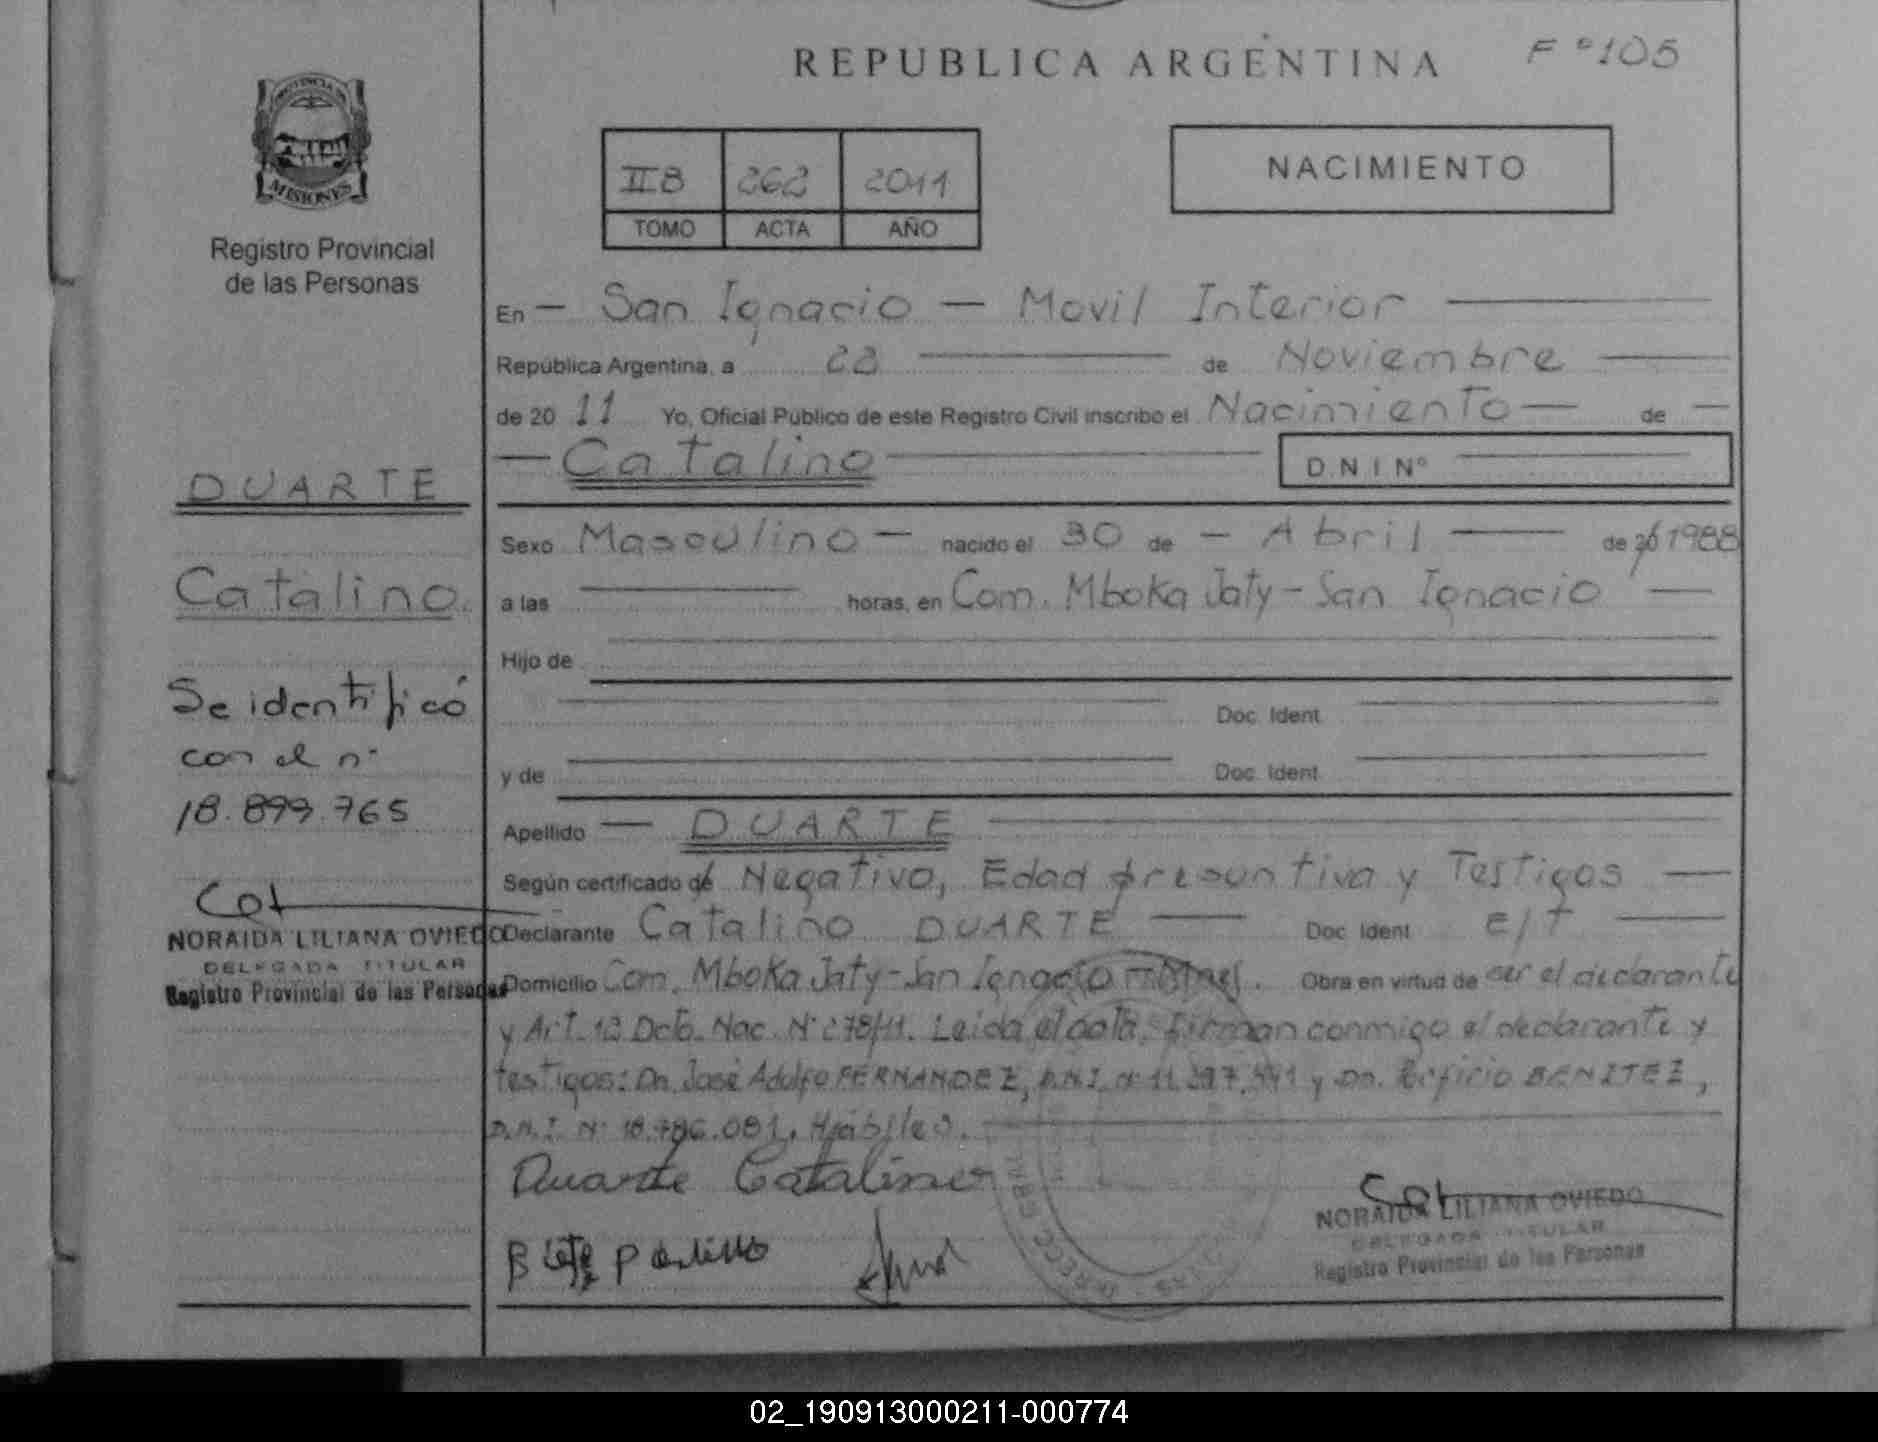 REPUBLICA ARGENTINA
F° 105
PROVINCIA DE
MISIONES
Registro Provincial
de las Personas
IIB 262 2011
TOMO ACTA AÑO
NACIMIENTO
En — San Ignacio — Movil Interior
República Argentina, a 22 de Noviembre
de 20 11 Yo, Oficial Público de este Registro Civil inscribo el Nacimiento — de —
— Catalino D.N.I Nº
DUARTE
Catalino
Se identificó
con el nº
18.899.765
NORAIDA LILIANA OVIEDO
DELEGADA TITULAR
Registro Provincial de las Personas
Sexo Masculino — nacido el 30 de — Abril — de 20 1988
a las — horas, en Com. Mboka Jaty - San Ignacio —
Hijo de
Doc. Ident.
y de Doc. Ident.
Apellido — DUARTE
Según certificado de Negativo, Edad presuntiva y Testigos —
Declarante Catalino DUARTE — Doc. Ident. E/T —
Domicilio Com. Mboka Jaty - San Ignacio - Mnes. Obra en virtud de ser el declarante
y Art. 12 Dcto. Nac. Nº 278/11. Leida el acta, firman conmigo el declarante y
testigos: Dn. José Adolfo FERNANDEZ, D.N.I. Nº 11. y Dn. BENITEZ,
D.N.I. Nº 18.786.081, Hábiles.
Duarte Catalino
NORAIDA LILIANA OVIEDO
DELEGADA TITULAR
Registro Provincial de las Personas
02_190913000211-000774